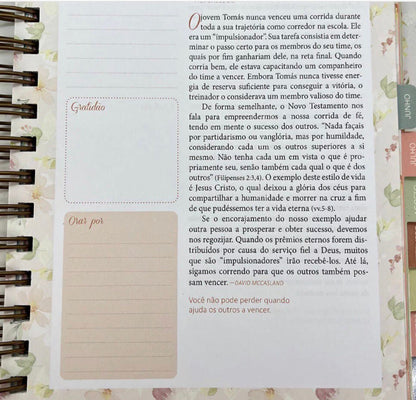 Gratidão
Orar por
O jovem Tomás nunca venceu uma corrida durante
toda a sua trajetória como corredor na escola. Ele
era um “impulsionador”. Sua tarefa consistia em deter-
minar o passo certo para os membros do seu time, os
quais por fim ganhariam dele, na reta final. Quando
corria bem, ele estava capacitando um companheiro
do time a vencer. Embora Tomás nunca tivesse energ-
ia de reserva suficiente para conseguir a vitória, o
treinador o considerava um membro valioso do time.
De forma semelhante, o Novo Testamento nos
fala para empreendermos a nossa corrida de fé,
tendo em mente o sucesso dos outros. “Nada façais
por partidarismo ou vanglória, mas por humildade,
considerando cada um os outros superiores a si
mesmo. Não tenha cada um em vista o que é pro-
priamente seu, senão também cada qual o que é dos
outros” (Filipenses 2:3,4). O exemplo deste estilo de vida
é Jesus Cristo, o qual deixou a glória dos céus para
compartilhar a humanidade e morrer na cruz a fim
de que pudéssemos ter a vida eterna (vv.5-8).
Se o encorajamento do nosso exemplo ajudar
outra pessoa a prosperar e obter sucesso, devemos
nos regozijar. Quando os prêmios eternos forem dis-
tribuídos por causa do serviço fiel a Deus, muitos
que são “impulsionadores” irão recebê-los. Até lá,
sigamos correndo para que os outros também pos-
sam vencer. —DAVID MCCASLAND
Você não pode perder quando
ajuda os outros a vencer.
JUNHO
JULHO